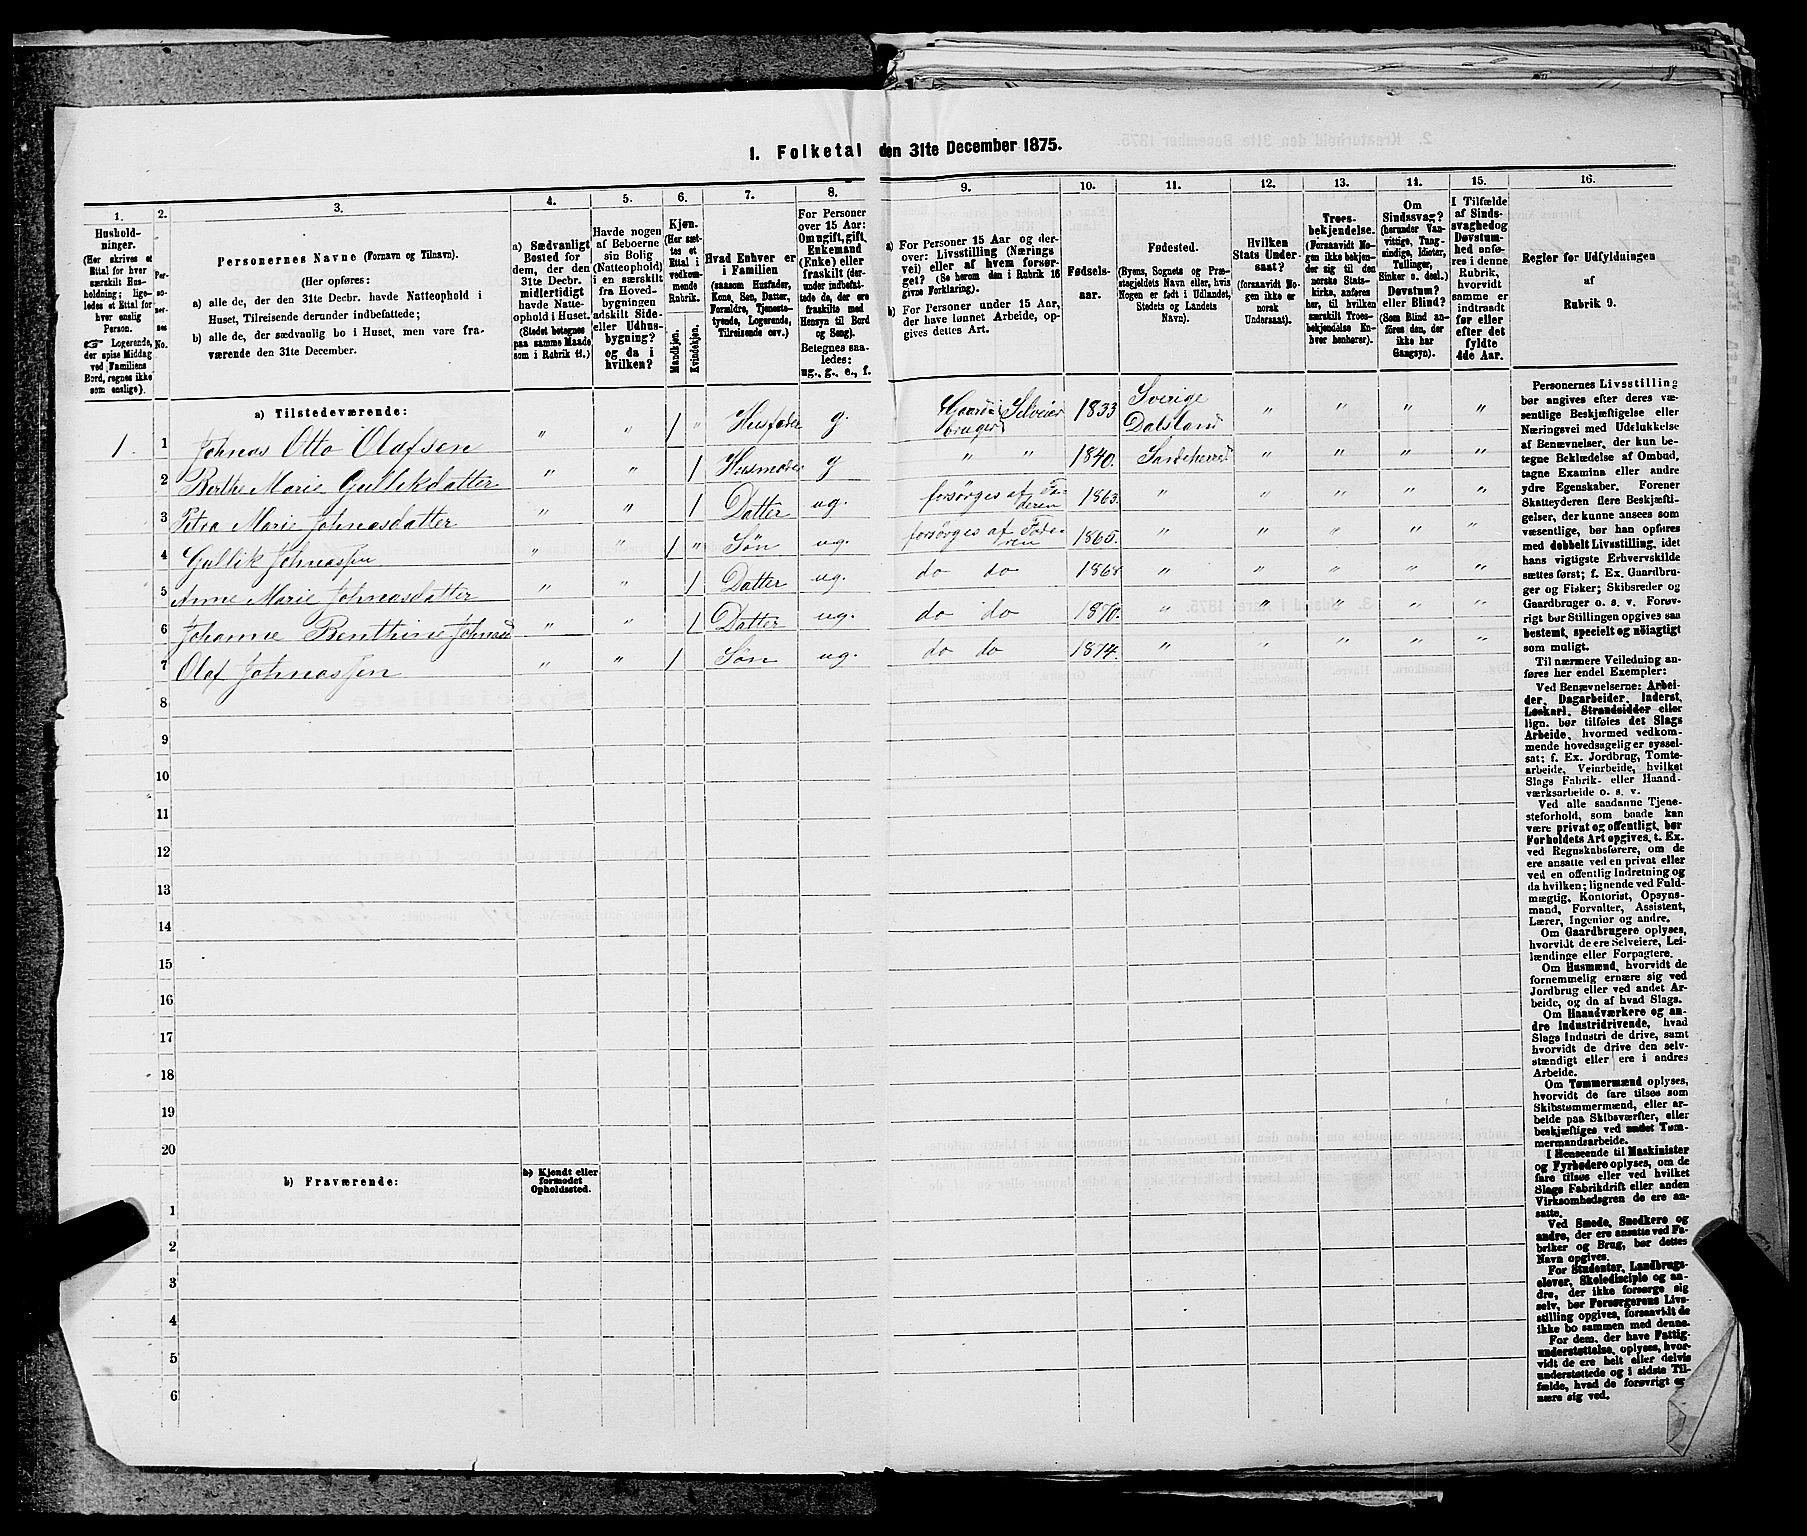 1. Folketal den 31te December 1875.
1. 2. 3. 4. 5. 6. 7. 8. 9. 10. 11. 12. 13. 14. 15. 16.
Hushold-
ninger.
(Her skrives et
Ettal for hver
særskilt Hus-
holdning; lige-
ledes et Ettal for
hver enslig
Person.
☞ Logerende,
der spise Middag
ved Familiens
Bord, regnes ikke
som enslige).
Per-
so-
ner-
nes
No.
Personernes Navne (Fornavn og Tilnavn).
(Her opføres:
a) alle de, der den 31te Decbr. havde Natteophold i
Huset, Tilreisende derunder indbefattede;
b) alle de, der sædvanlig bo i Huset, men vare fra-
værende den 31te December.
a) Sædvanligt
Bosted for
dem, der den
31te Decbr.
midlertidigt
havde Natte-
ophold i Huset.
(Stedet betegnes
paa samme Maade
som i Rubrik 11.)
Havde nogen
af Beboerne
sin Bolig
(Natteophold)
i en særskilt
fra Hoved-
bygningen
adskilt Side-
eller Udhus-
bygning?
og da i
hvilken?
Kjøn.
(Her sæt-
tes et
Ettal i
vedkom-
mende
Rubrik.
Mandkjøn.
Kvindekjøn.
Hvad Enhver er
i Familien
(saasom Husfader,
Kone, Søn, Datter,
Forældre, Tjeneste-
tyende, Logerende,
Tilreisende osv.)
For Personer
over 15 Aar:
Om ugift, gift,
Enkemand
(Enke) eller
fraskilt (der-
under indbefat-
tede de, der ere
fraskilte med
Hensyn til Bord
og Seng).
Betegnes saa-
ledes:
ug., g., e., f.
a) For Personer 15 Aar og der-
over: Livsstilling (Nærings-
vei) eller af hvem forsør-
get? (Se herom den i Rubrik 16
givne Forklaring).
b) For Personer under 15 Aar,
der have lønnet Arbeide, op-
gives dettes Art.
Fødsels-
aar.
Fødested.
(Byens, Sognets og Præ-
stegjeldets Navn eller, hvis
Nogen er født i Udlandet,
Stedets og Landets
Navn).
Hvilken
Stats Under-
saat?
(forsaavidt No-
gen ikke er
norsk
Undersaat).
Troes-
bekjendelse.
(Forsaavidt No-
gen ikke bekjen-
der sig til den
norske Stats-
kirke, anføres
her, til hvilken
særskilt Troes-
bekjendelse En-
hver henhører).
Om
Sindssvag?
(herunder Van-
vittige, Tung-
sindige, Idioter,
Tullinger,
Sinker o. desl.)
Døvstum?
eller Blind?
(Som Blind an-
føres den, der
ikke har
Gangsyn).
I Tilfælde
af Sinds-
svaghed og
Døvstum-
hed anfø-
res i denne
Rubrik,
hvorvidt
samme er
indtraadt
før eller
efter det
fyldte
4de Aar.
Regler for Udfyldningen
af
Rubrik 9.
a) Tilstedeværende:
1 1 Johnas Otto Olafsen " " 1 " Husfader g. Gaard-bruger Selveier 1833 Sverige Dalsland " " " "
2 Berthe Marie Gullikdatter " " 1 Husmoder g " " 1840. Sandeherred " " " "
3 Petra Marie Johnasdatter " " 1 Datter ug. forsørges af Faderen 1863. " " " " "
4 Gullik Johnassen " " 1 " Søn ug. forsørges af Faderen 1865. " " " " "
5 Anne Marie Johnasdatter " " 1 Datter ug. do do 1868 " " " " "
6 Johanne Benthine Johnasd " " 1 Datter ug. do do 1870. " " " " "
7 Olaf Johnassen " " 1 Søn ug. do do 1874. " " " " "
8
9
10
11
12
13
14
15
16
17
18
19
20
b) Fraværende:
b) Kjendt eller
formodet
Opholdssted.
1
2
3
4
5
6
Personernes Livsstilling
bør angives efter deres væ-
sentlige Beskjæftigelse eller
Næringsvei med Udelukkelse
af Benævnelser, der kun be-
tegne Beklædelse af Ombud,
tagne Examina eller andre
ydre Egenskaber. Forener
Skatteyderen flere Beskjæfti-
gelser, der kunne ansees som
væsentlige, bør han opføres
med dobbelt Livsstilling, idet
hans vigtigste Erhvervskilde
sættes først; f. Ex. Gaardbru-
ger og Fisker; Skibsreder og
Gaardbruger o. s. v. Forøv-
rigt bør Stillingen opgives saa
bestemt, specielt og nøiagtigt
som muligt.
Til nærmere Veiledning an-
føres her endel Exempler:
Ved Benævnelserne: Arbei-
der, Dagarbeider, Inderst,
Løskarl, Strandsidder eller
lign. bør tilføies det Slags
Arbeide, hvormed vedkom-
mende hovedsagelig er syssel-
sat; f. Ex. Jordbrug, Tomte-
arbeide, Veiarbeide, hvilket
Slags Fabrik- eller Haand-
værksarbeide o. s. v.
Ved alle saadanne Tjene-
steforhold, som baade kan
være privat og offentligt, bør
Forholdets Art opgives, t. Ex.
ved Regnskabsførere, om de
ere ansatte ved en privat eller
ved en offentlig Indretning og
da hvilken; lignende ved Fuld-
mægtig, Kontorist, Opsyns-
mand, Forvalter, Assistent,
Lærer, Ingeniør og andre.
Om Gaardbrugere oplyses,
hvorvidt de ere Selveiere, Lei-
lændinge eller Forpagtere.
Om Husmænd, hvorvidt de
fornemmelig ernære sig ved
Jordbrug eller ved andet Ar-
beide, og da af hvad Slags.
Om Haandværkere og an-
dre Industridrivende, hvad
Slags Industri de drive, samt
hvorvidt de drive den selv-
stændigt eller ere i andres
Arbeide.
Om Tømmermænd oplyses,
hvorvidt de fare tilsøs som
Skibstømmermænd, eller ar-
beide paa Skibsværfter, eller
beskjæftiges ved andet Tøm-
mermandsarbeide.
I Henseende til Maskinister
og Fyrbødere oplyses, om de
fare tilsøs eller ved hvilket
Slags Fabrikdrift eller anden
Virksomhedsgren de ere an-
satte.
Ved Smede, Snedkere og
andre, der ere ansatte ved Fa-
briker og Brug, bør dettes
Navn opgives.
For Studenter, Landbrugs-
elever, Skoledisciple og an-
dre, der ikke forsørge sig
selv, bør Forsørgerens Livs-
stilling opgives, forsaavidt de
ikke bo sammen med denne.
For dem, der have Fattig-
understøttelse, oplyses, hvor-
vidt de ere helt eller delvis
understøttede og i sidste Til-
fælde, hvad de forøvrigt er-
nære sig ved.